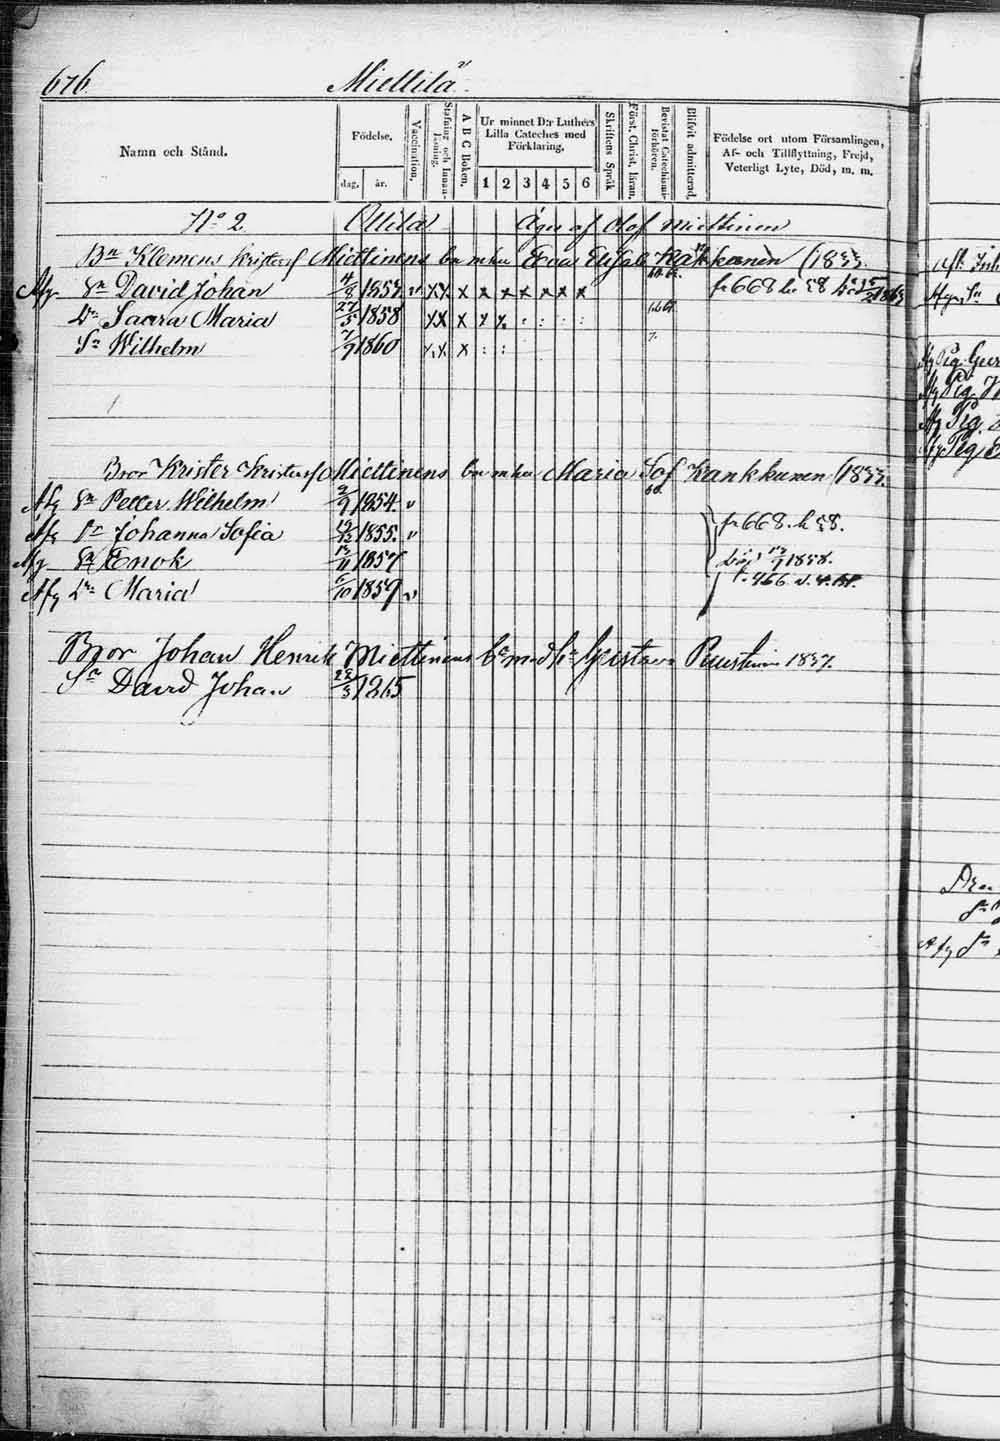 676. Miettilä
Namn och Stånd.
Födelse.
dag. år.
Vaccination.
Stafning och Innan-läsning.
A B C Boken.
Ur minnet D:r Luthers Lilla Cateches med Förklaring.
1 2 3 4 5 6
Skriftens Språk
Först. Christ. läran.
Bevistat Catechismi-förhören.
Blifvit admitterad.
Födelse ort utom Församlingen, Af- och Tillflyttning, Frejd, Veterligt Lyte, Död, m. m.
No 2 Ollila Äges af Olof Miettinen
Bn Klemens Kristersf Miettinens bn m hu Eva Elisab Kankkunen (1833.
Afg Sn David Johan 4/9 1857 " x x x x x x x x x fr 668 h 58
Dr Saara Maria 27/5 1858 x x x x x : : : :
Sn Wilhelm 7/9 1860 x x x : :
Bror Krister Kristersf Miettinens bn m hu Maria Sof Kankkunen (1833.
Afg Sn Petter Wilhelm 2/9 1854. "
Afg Dr Johanna Sofia 19/12 1855. " fr 668. h 58.
Afg Sn Enok 13/11 1857 1858.
Afg Dr Maria 6/10 1859 " t. 466.
Bror Johan Henrik Miettinens bn med h Gustava Puustinen 1837.
Sn David Johan 23/3 1865